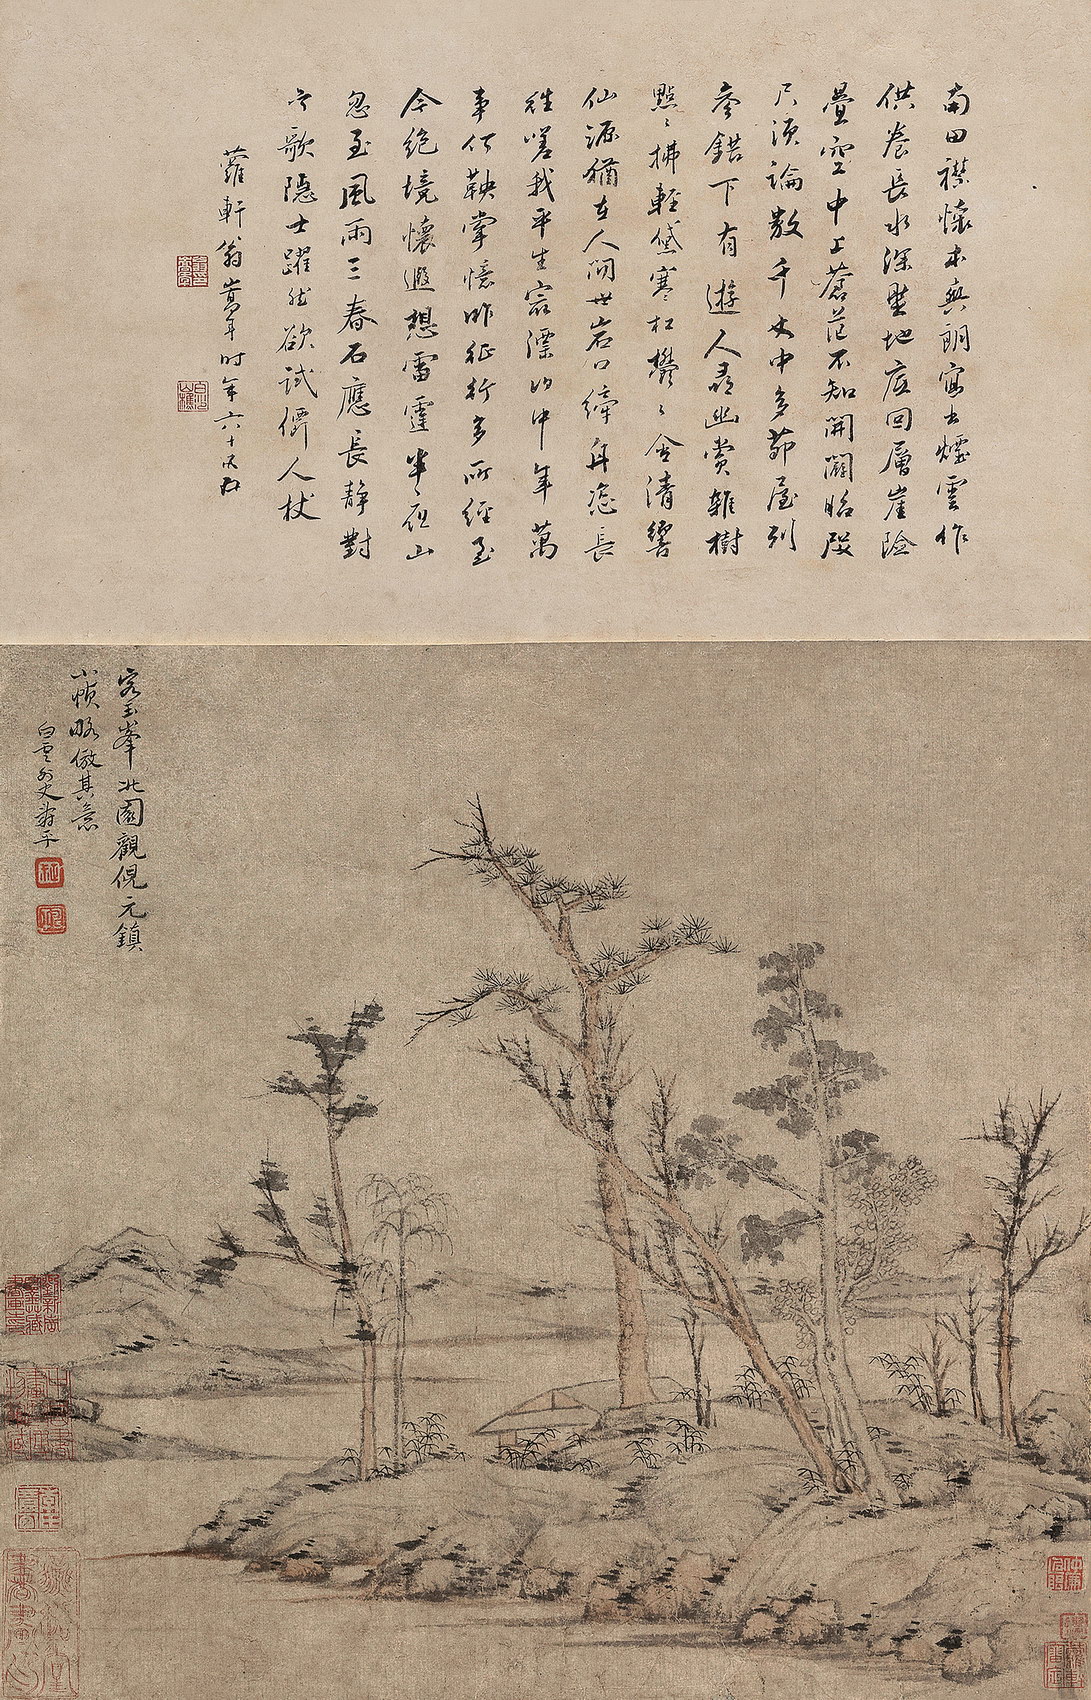 南田襟懷本爽朗寫出煙雲作
供養長水深壑地底回層崖險
疊空中上蒼茫不知開闢
尺須論數千丈中多茆屋列
參錯下有遊人尋幽賞雜樹
點〻拂輕黛寒松鬱〻含清響
仙源猶在人間世岩口縴舟恣長
往嗟我平生寄漂泊中年萬
事何鞅掌憶昨征行多所經至
今絕境懷遐想雷霆半夜山
忽至風雨三春石應長靜對
歌隱士躍然欲試僊人杖
蘿軒翁嵩年時年六十
客玉峯北園觀倪元鎮
小幀略倣其意
白雲外史壽平